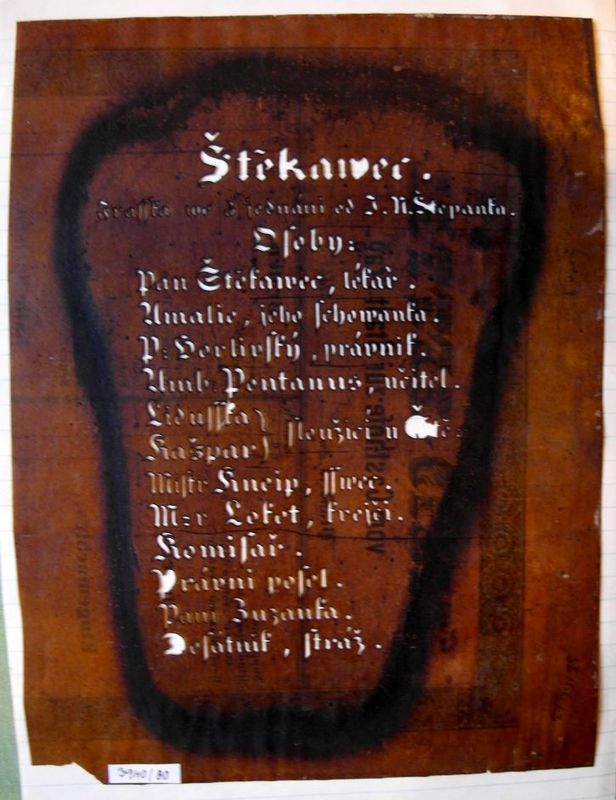 Štěkawec.
Frasſka we 3 jednáni od J. N. Štěpánka.
Oſoby:
Pan Štěkawec, lékař.
Amalie, jeho ſchowanka.
P: Horliwſký, právník.
Amb: Pontanus, učitel.
Liduſſka
Kašpar) ſloužící u Ště:
Miſtr Kneip, ſſwec.
M=r Loket, krejčí.
Komiſař.
Právní poſel.
Paní Zuzanka.
Deſátník, ſtráž.
3940/80